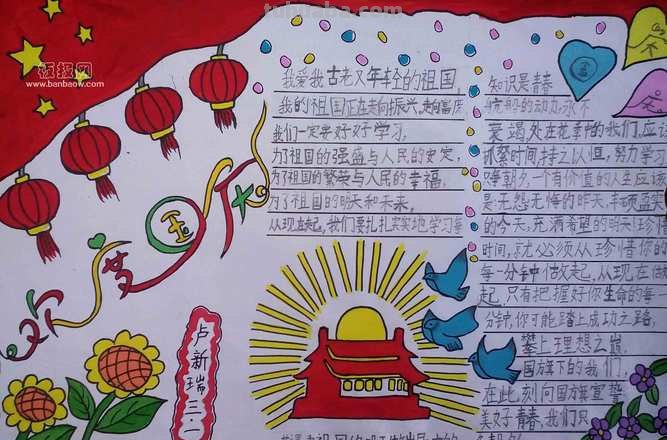 tuhuaba.com
板报网
www.banbaow.com
欢度国庆
卢新瑞三.二
我爱我古老又年轻的祖国,
我的祖国正在走向振兴,走向富庶
我们一定要好好学习,
为了祖国的强盛与人民的安定,
为了祖国的繁荣与人民的幸福,
为了祖国的明天和未来,
从现在起,我们要扎扎实实地学习每
知识是青春
的动力,永不
衰竭处在花季的我们,应
抓紧时间,持之以恒,努力学习
争朝夕,一个有价值的人生应该
是无怨无悔的昨天,丰硕
的今天,充满希望的明天!珍惜
时间,就必须从珍惜你的
每一分钟做起,从现在做
起,只有把握好你生命的每
分钟,你可能踏上成功之路,
攀上理想之巅.
国旗下的我们,
在此刻向国旗宣誓
美好青春,我们只